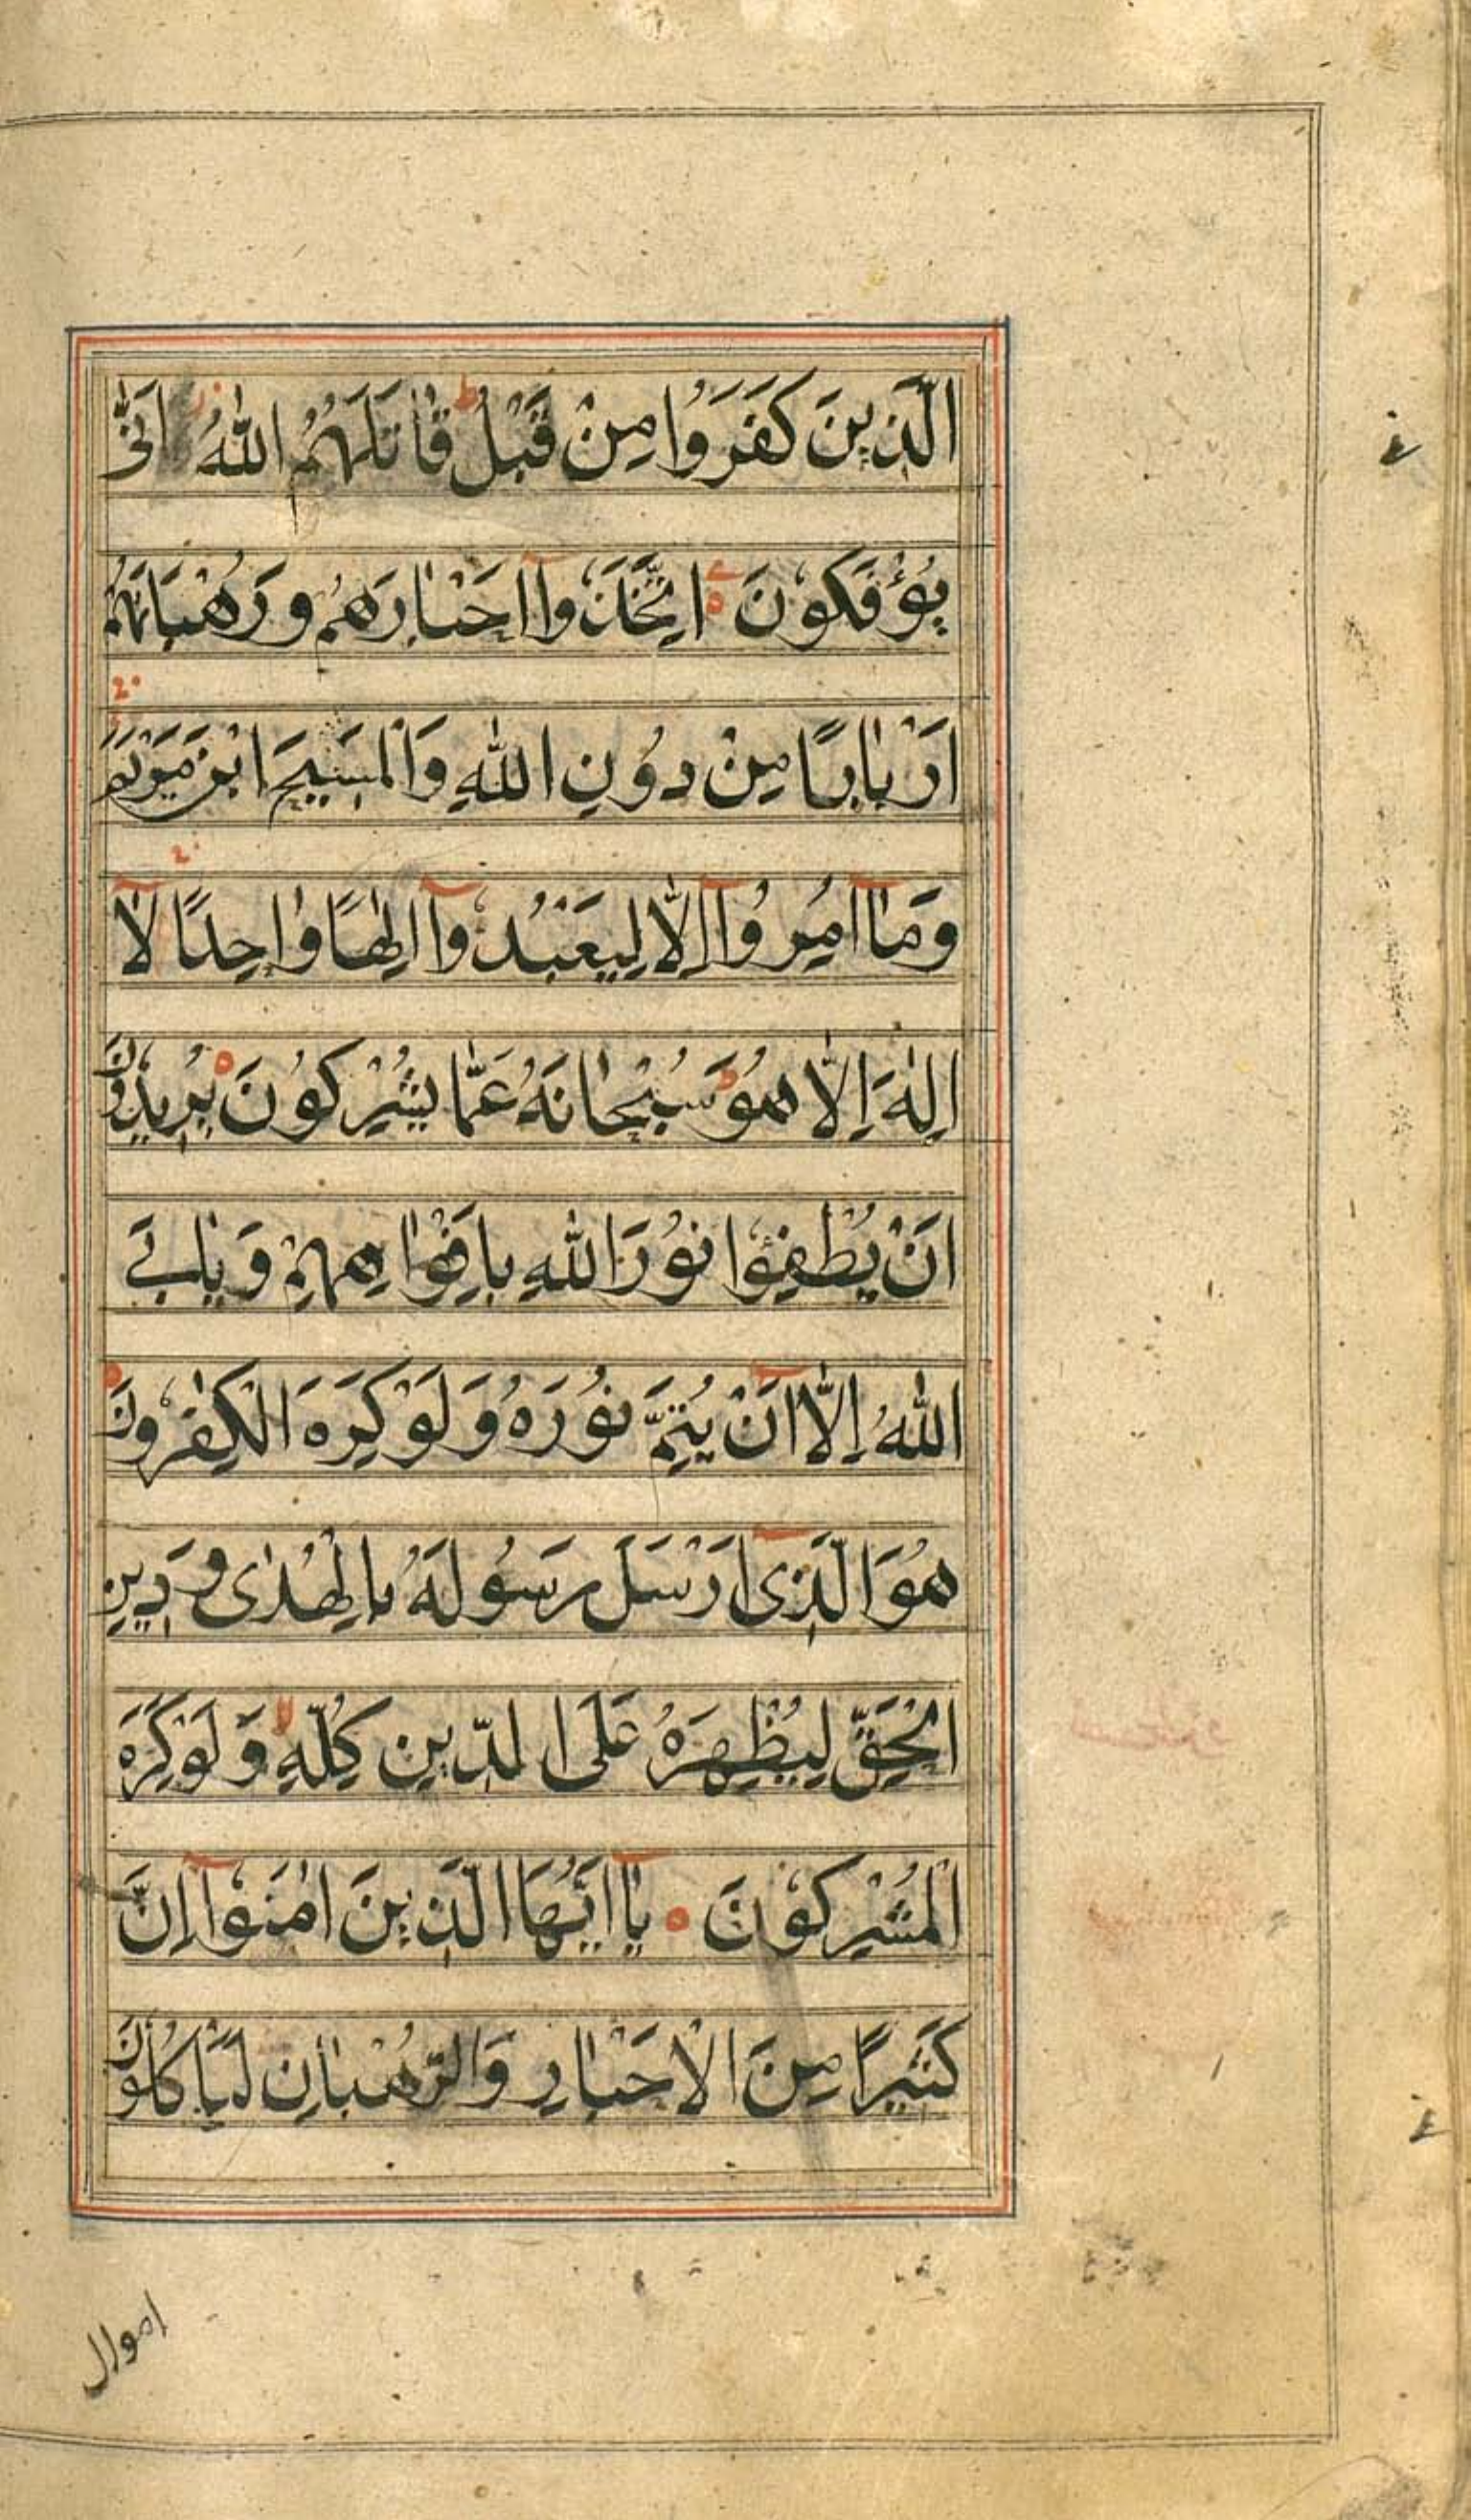 الَّذِينَ كَفَرُوا مِنْ قَبْلُ قَاتَلَهُمُ اللّٰهُ اَنّٰى
يُؤْفَكُونَ اِتَّخَذُوْٓا اَحْبَارَهُمْ وَرُهْبَانَهُمْ
اَرْبَابًا مِنْ دُوْنِ اللّٰهِ وَالْمَسِيْحَ ابْنَ مَرْيَمَ
وَمَآ اُمِرُوْٓا اِلَّا لِيَعْبُدُوْٓا اِلٰهًا وَاحِدًا لَآ
اِلٰهَ اِلَّا هُوَ سُبْحَانَهُ عَمَّا يُشْرِكُوْنَ يُرِيْدُوْنَ
اَنْ يُطْفِئُوْا نُوْرَ اللّٰهِ بِاَفْوَاهِهِمْ وَيَابَى
اللّٰهُ اِلَّآ اَنْ يُتِمَّ نُوْرَهُ وَلَوْ كَرِهَ الْكٰفِرُوْنَ
هُوَ الَّذِىٓ اَرْسَلَ رَسُوْلَهُ بِالْهُدٰى وَدِيْنِ
الْحَقِّ لِيُظْهِرَهُ عَلَى الدِّيْنِ كُلِّهٖ وَلَوْ كَرِهَ
الْمُشْرِكُوْنَ يَآ اَيُّهَا الَّذِيْنَ اٰمَنُوْٓا اِنَّ
كَثِيْرًا مِنَ الْاَحْبَارِ وَالرُّهْبَانِ لَيَاْكُلُوْنَ
اموال